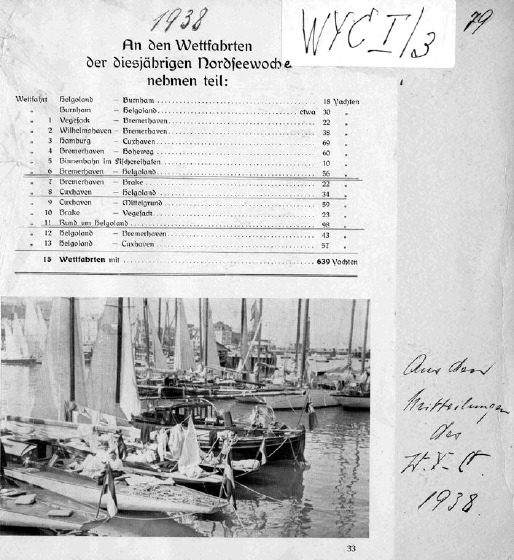 1938
WYC I/3
79
An den Wettfahrten
der diesjährigen Nordseewoche
nehmen teil:
Wettfahrt Helgoland – Burnham 18 Yachten
„ Burnham – Helgoland etwa 30 „
„ 1 Vegesack – Bremerhaven 22 „
„ 2 Wilhelmshaven – Bremerhaven 38 „
„ 3 Hamburg – Cuxhaven 69 „
„ 4 Bremerhaven – Hoheweg 60 „
„ 5 Binnenbahn im Fischereihafen 10 „
„ 6 Bremerhaven – Helgoland 56 „
„ 7 Bremerhaven – Brake 22 „
„ 8 Cuxhaven – Helgoland 34 „
„ 9 Cuxhaven – Mittelgrund 59 „
„ 10 Brake – Vegesack 23 „
„ 11 Rund um Helgoland 98 „
„ 12 Helgoland – Bremerhaven 43 „
„ 13 Helgoland – Cuxhaven 57 „
15 Wettfahrten mit 639 Yachten
Aus den
Mitteilungen
des
W.Y.C.
1938
33